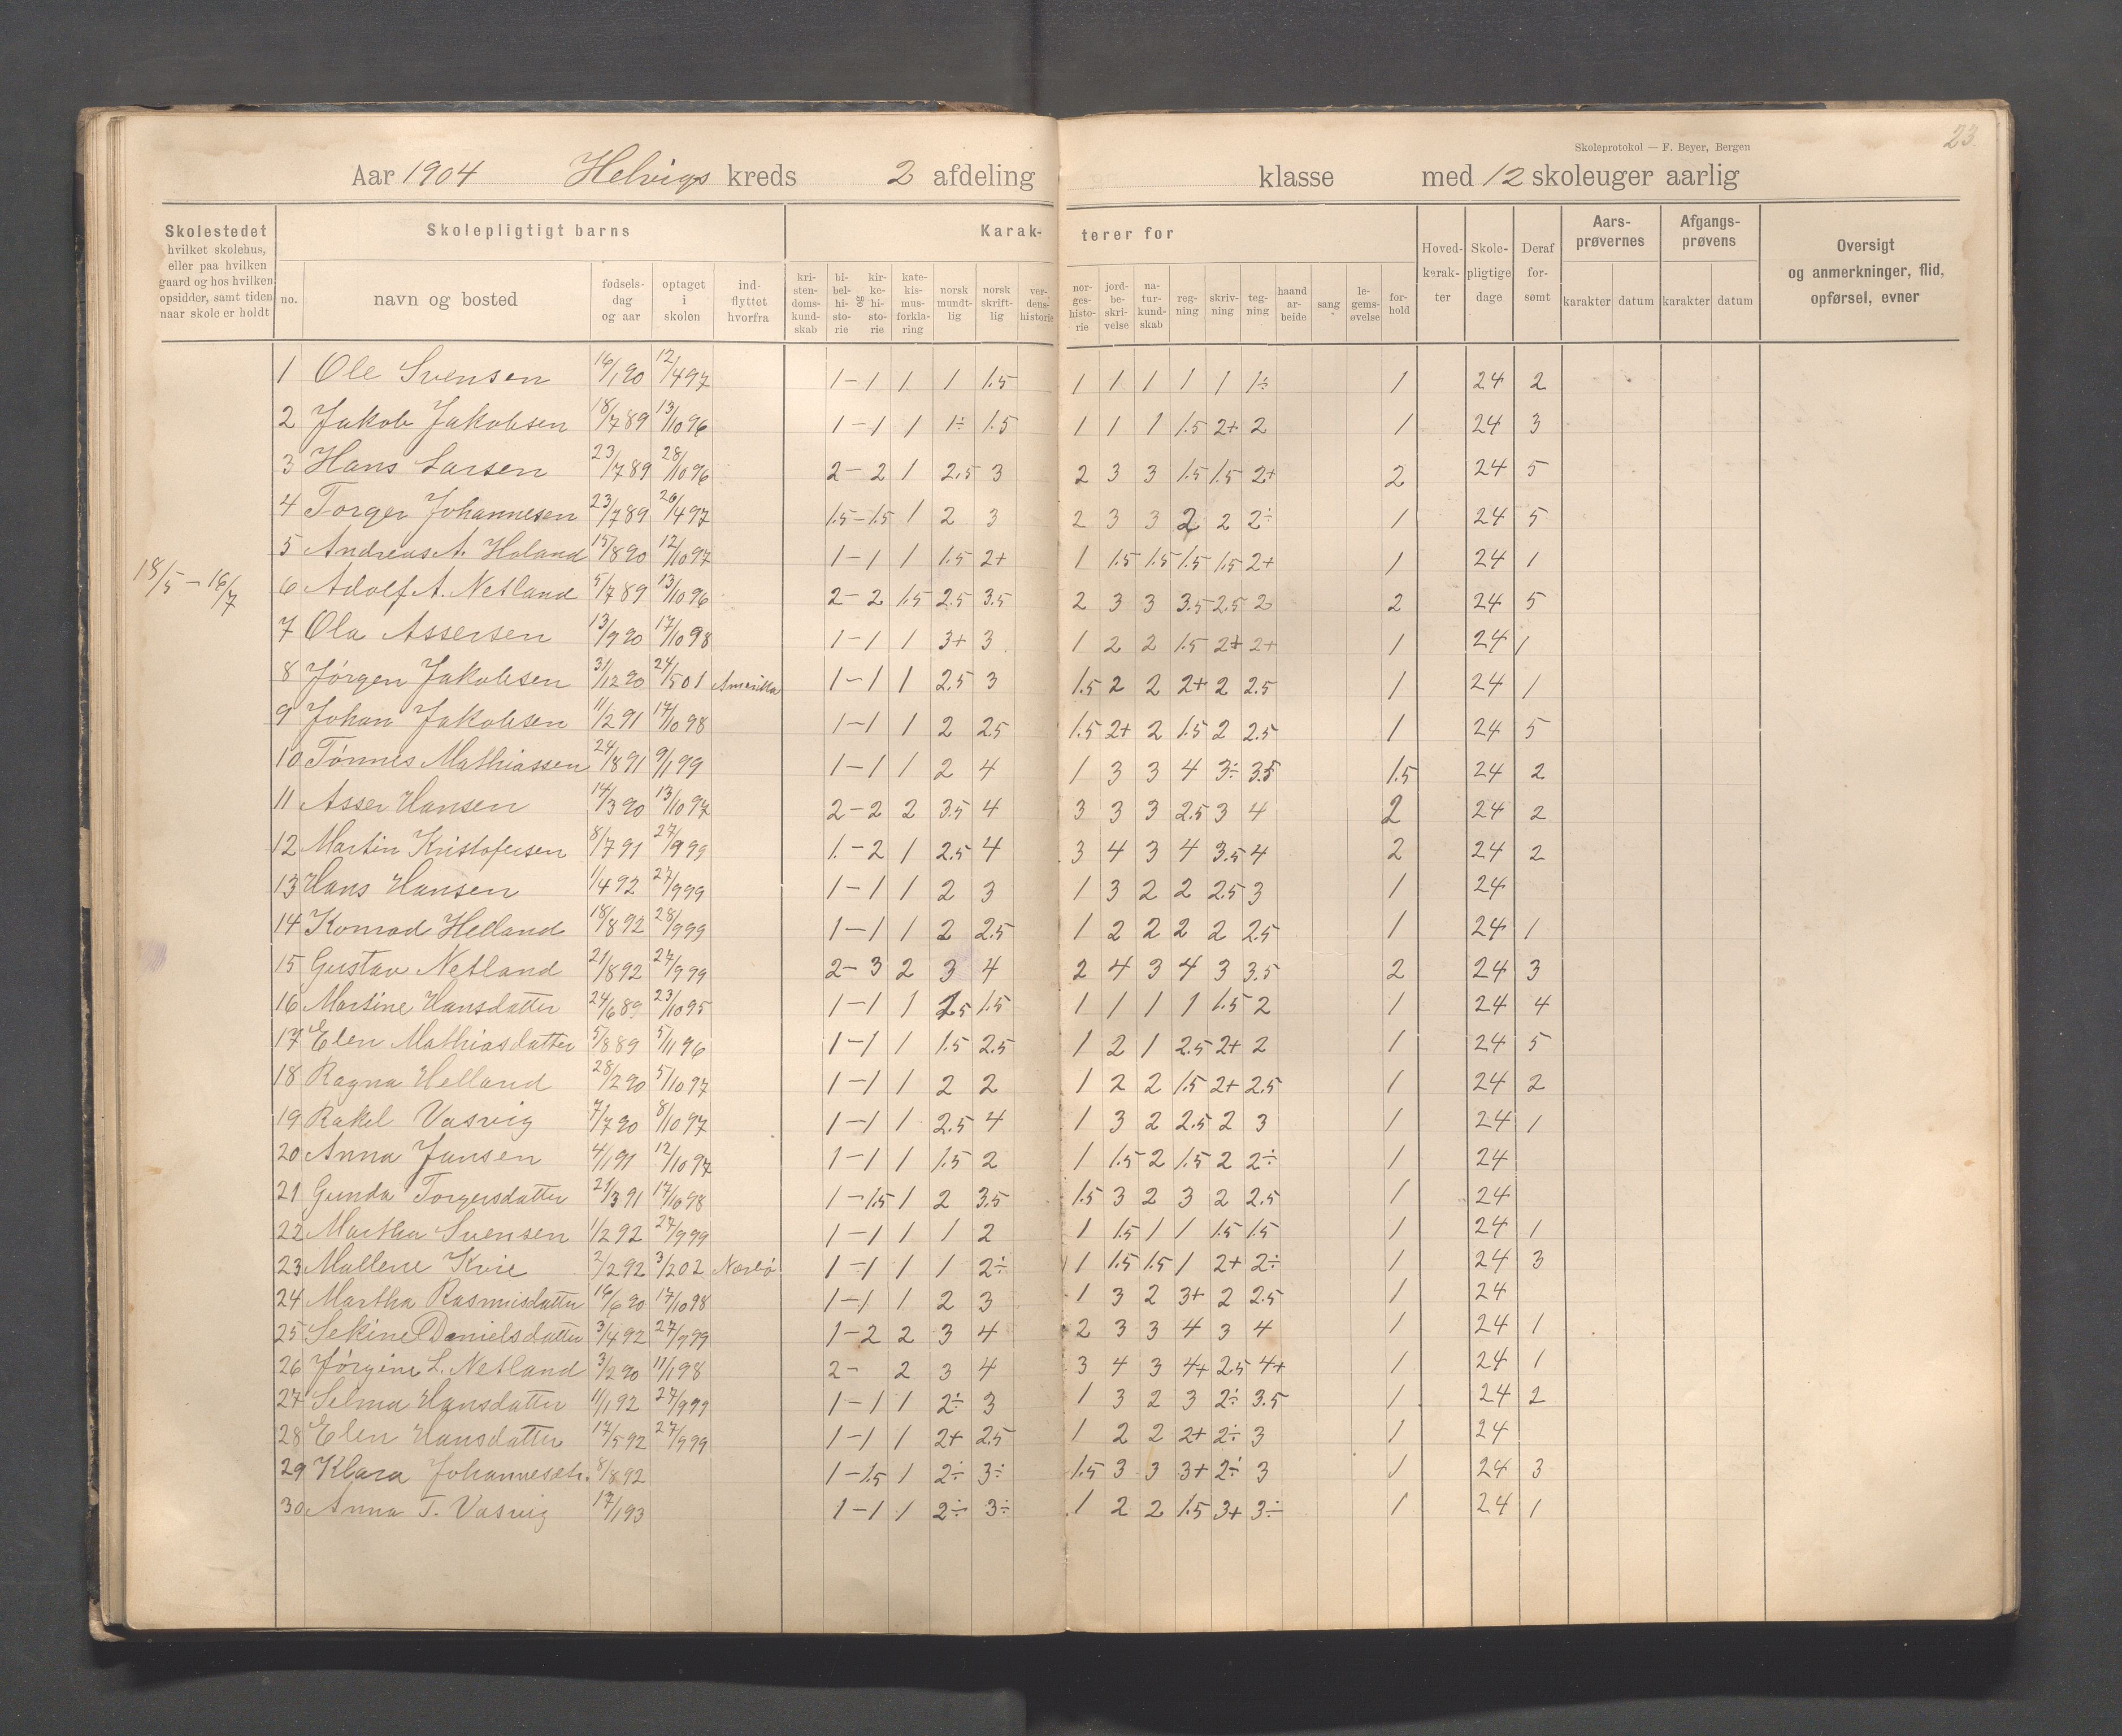 23
Skoleprotokol — F. Beyer, Bergen
Aar 1904 Helvigs kreds 2 afdeling klasse med 12 skoleuger aarlig
Skolestedet hvilket skolehus, eller paa hvilken gaard og hos hvilken opsidder, samt tiden naar skole er holdt
Skolepligtigt barns
Karakterer for
no. navn og bosted fødselsdag og aar optaget i skolen indflyttet hvorfra
kristendomskundskab bibelhistorie og kirkehistorie katekismusforklaring norsk mundtlig norsk skriftlig verdenshistorie
norgeshistorie jordbeskrivelse naturkundskab regning skrivning tegning haandarbeide sang legemsøvelse forhold
Hovedkarakter Skolepligtige dage Deraf forsømt
Aarsprøvernes karakter datum Afgangsprøvens karakter datum
Oversigt og anmerkninger, flid, opførsel, evner
18/5 — 16/7
1 Ole Svensen 16/1 90 12/4 97 1 - 1 1 1 1.5 1 1 1 1 1 1÷ 1 24 2
2 Jakob Jakobsen 18/7 89 13/10 96 1 - 1 1 1÷ 1.5 1 1 1 1.5 2+ 2 1 24 3
3 Hans Larsen 23/7 89 28/10 96 2 - 2 1 2.5 3 2 3 3 1.5 1.5 2+ 2 24 5
4 Torger Johannesen 23/7 89 26/4 97 1.5 - 1.5 1 2 3 2 3 3 2 2 2÷ 1 24 5
5 Andreas A. Holand 15/8 90 12/10 97 1 - 1 1 1.5 2+ 1 1.5 1.5 1.5 1.5 2+ 1 24 1
6 Adolf A. Netland 5/7 89 13/10 96 2 - 2 1.5 2.5 3.5 2 3 3 3.5 2.5 2 2 24 5
7 Ola Assersen 13/9 90 17/10 98 1 - 1 1 3+ 3 1 2 2 1.5 2+ 2+ 1 24 1
8 Jørgen Jakobsen 31/12 90 24/5 01 Amerika 1 - 1 1 2.5 3 1.5 2 2 2+ 2 2.5 1 24 1
9 Johan Jakobsen 11/2 91 17/10 98 1 - 1 1 2 2.5 1.5 2+ 2 1.5 2 2.5 1 24 5
10 Tønnes Mathiassen 24/8 91 9/1 99 1 - 1 1 2 4 1 3 3 4 3÷ 3.5 1.5 24 2
11 Asser Hansen 14/3 90 13/10 97 2 - 2 2 3.5 4 3 3 3 2.5 3 4 2 24 2
12 Martin Kristofersen 8/7 91 27/9 99 1 - 2 1 2.5 4 3 4 3 4 3.5 4 2 24 2
13 Hans Hansen 1/4 92 27/9 99 1 - 1 1 2 3 1 3 2 2 2.5 3 1 24
14 Konrad Helland 18/8 92 28/9 99 1 - 1 1 2 2.5 1 2 2 2 2 2.5 1 24 1
15 Gustav Netland 21/8 92 27/9 99 2 - 3 2 3 4 2 4 3 4 3 3.5 2 24 3
16 Martine Hansdatter 24/6 89 23/10 95 1 - 1 1 1.5 1.5 1 1 1 1 1.5 2 1 24 4
17 Elen Mathiasdatter 5/8 89 5/11 96 1 - 1 1 1.5 2.5 1 2 1 2.5 2+ 2 1 24 5
18 Ragna Helland 28/2 90 5/10 97 1 - 1 1 2 2 1 2 2 1.5 2+ 2.5 1 24 2
19 Rakel Vasvig 7/7 90 8/10 97 1 - 1 1 2.5 4 1 3 2 2.5 2 3 1 24 1
20 Anna Jansen 4/1 91 12/10 97 1 - 1 1 1.5 2 1 1.5 2 1.5 2 2÷ 1 24
21 Gunda Torgersdatter 21/3 91 17/10 98 1 - 1.5 1 2 3.5 1.5 3 2 3 2 2.5 1 24
22 Martha Svensen 1/2 92 27/9 99 1 - 1 1 1 2 1 1.5 1 1 1.5 1.5 1 24 1
23 Mallene Kvie 2/2 92 3/2 02 Nærbø 1 - 1 1 1 2÷ 1 1.5 1.5 1 2+ 2÷ 1 24 3
24 Martha Rasmusdatter 16/6 90 17/10 98 1 - 1 1 2 3 1 3 2 3+ 2 2.5 1 24
25 Sekine Danielsdatter 3/4 92 27/9 99 1 - 2 2 3 4 2 3 3 4 3 4 1 24 1
26 Jørgine L. Netland 3/2 90 11/1 98 2 - 2 3 4 3 4 3 4+ 2.5 4+ 1 24 1
27 Selma Hansdatter 11/1 92 27/9 99 1 - 1 1 2÷ 3 1 3 2 3 2÷ 3.5 1 24 2
28 Elen Hansdatter 17/5 92 27/9 99 1 - 1 1 2+ 2.5 1 2 2 2+ 2÷ 3 1 24
29 Klara Johannesdtr. 8/8 92 1 - 1.5 1 2÷ 3÷ 1.5 3 3 3+ 2÷ 3 1 24 3
30 Anna T. Vasvig 17/1 93 1 - 1 1 2÷ 3÷ 1 2 2 1.5 3+ 3÷ 1 24 1